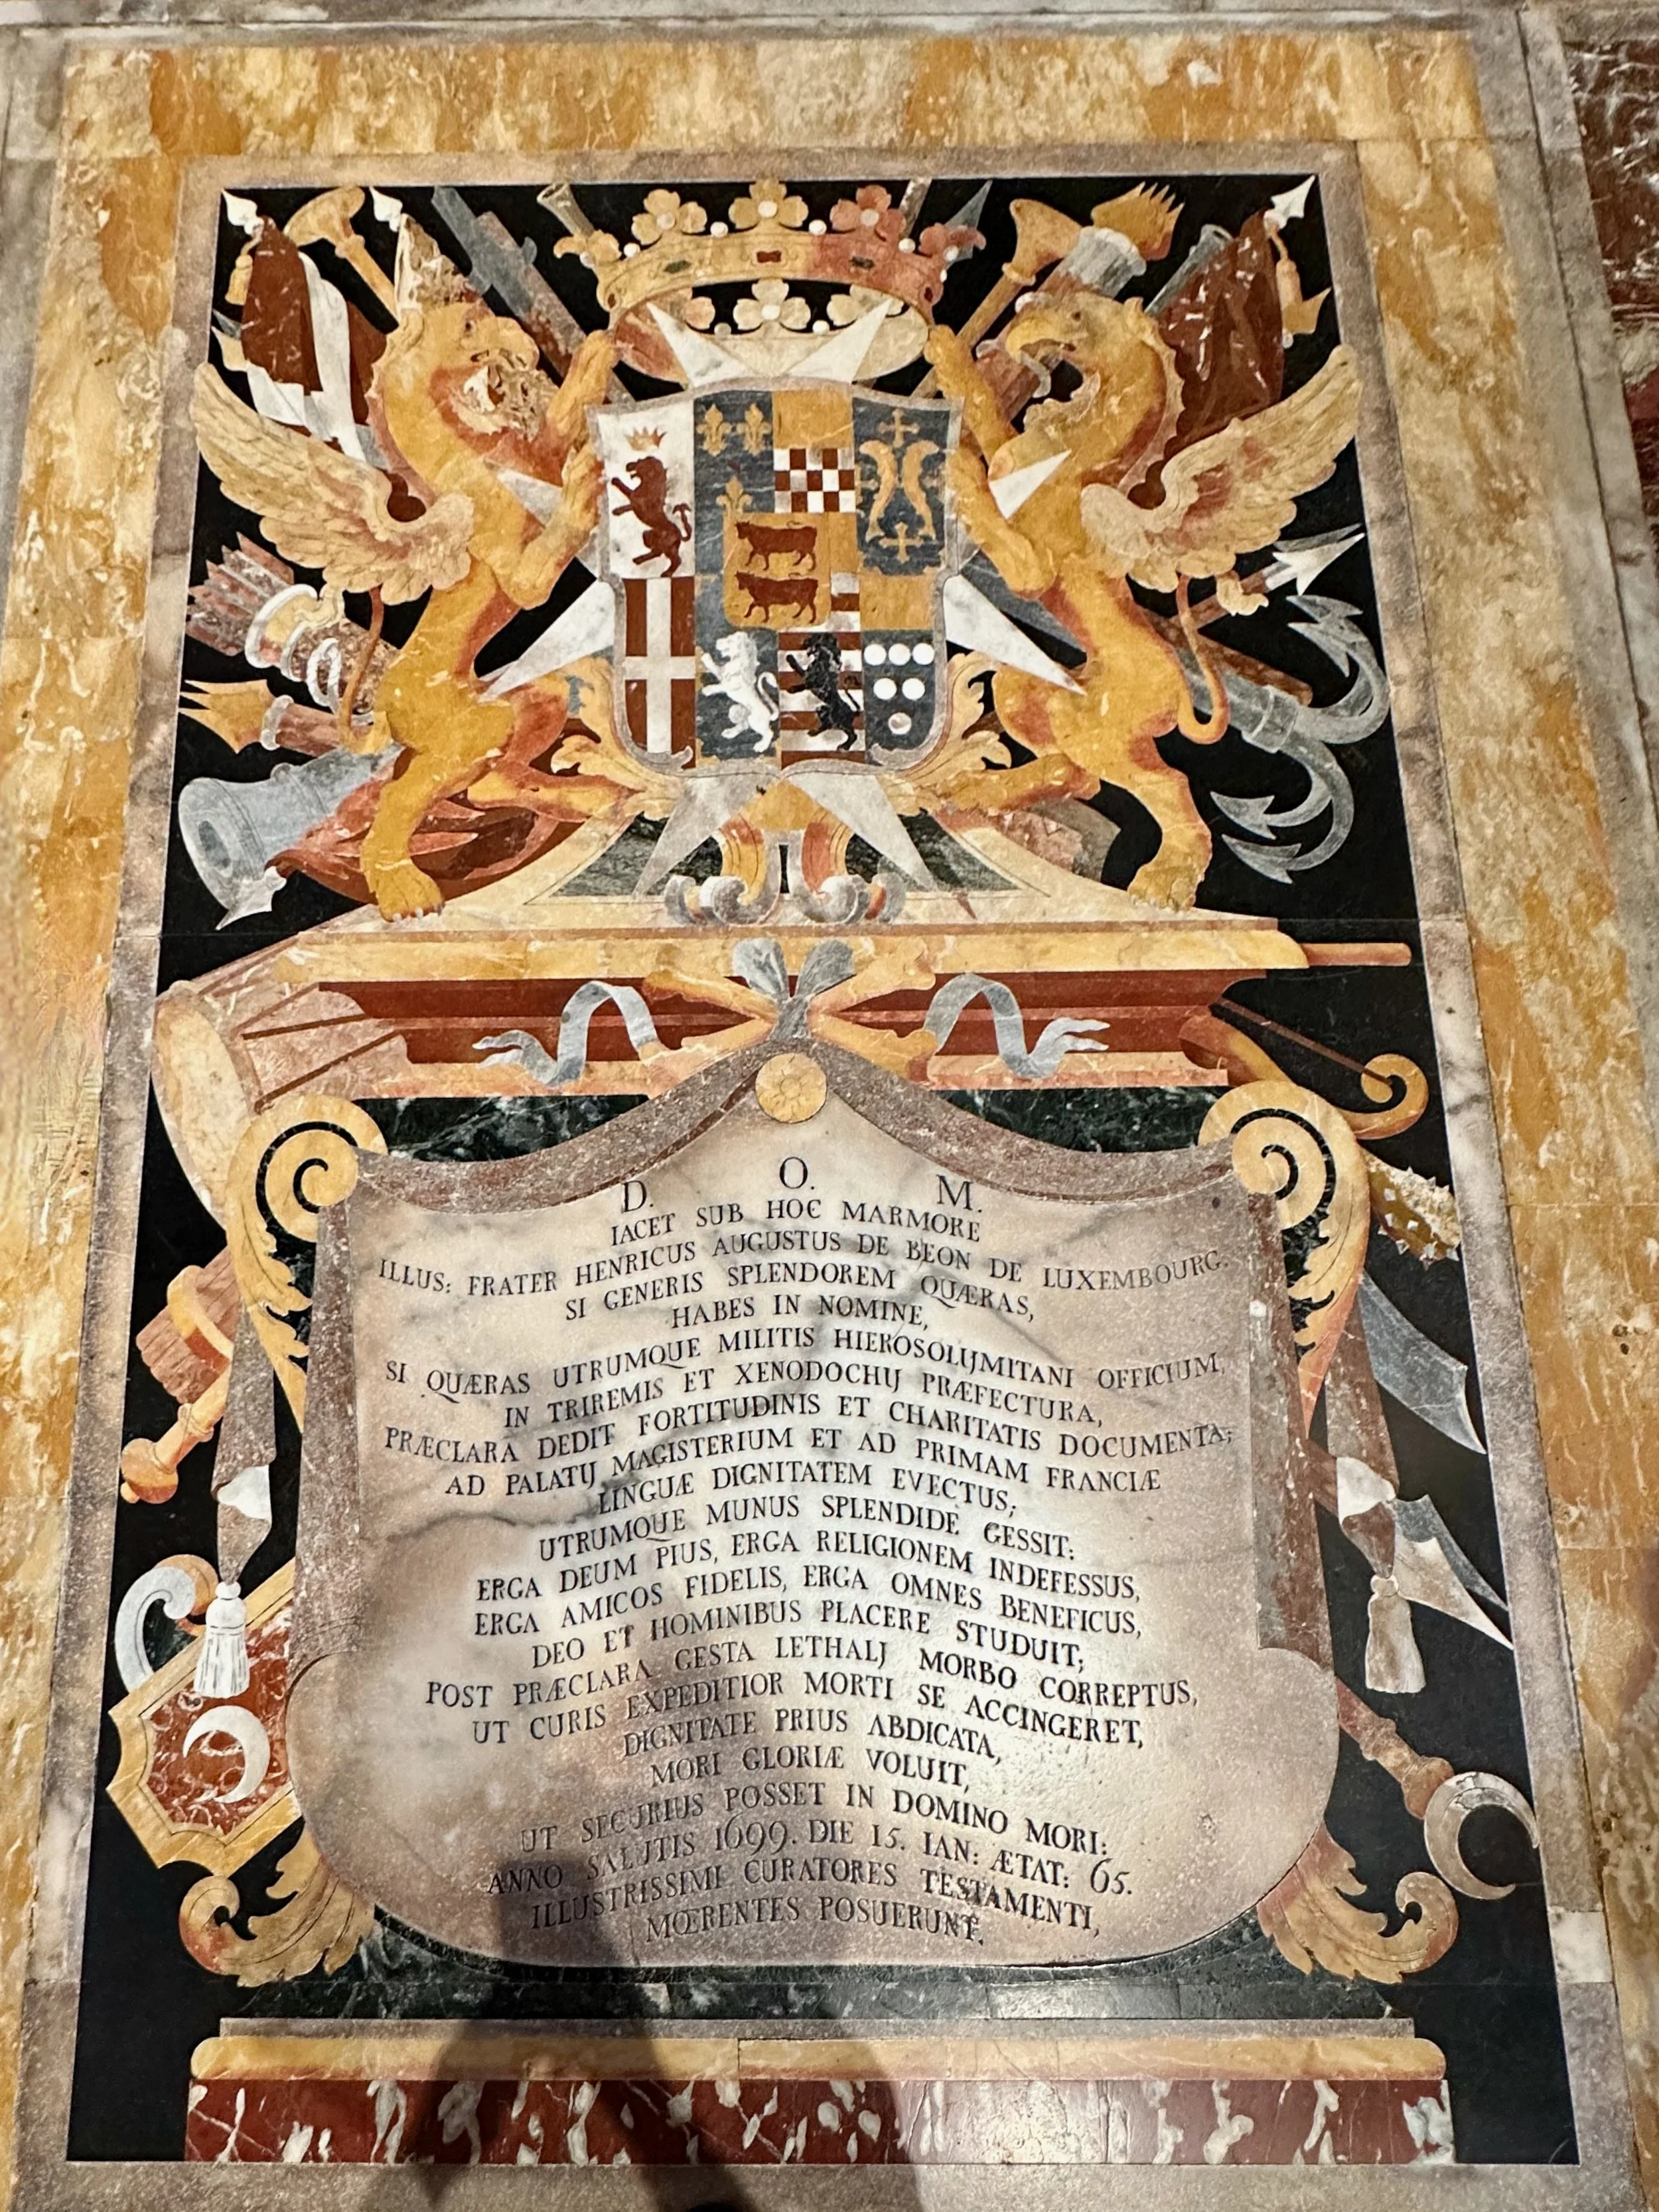 D. O. M.
IACET SUB HOC MARMORE
ILLUS: FRATER HENRICUS AUGUSTUS DE BEON DE LUXEMBOURG.
SI GENERIS SPLENDOREM QUÆRAS,
HABES IN NOMINE,
SI QUÆRAS UTRUMQUE MILITIS HIEROSOLIJMITANI OFFICIUM,
IN TRIREMIS ET XENODOCHIJ PRÆFECTURA,
PRÆCLARA DEDIT FORTITUDINIS ET CHARITATIS DOCUMENTA;
AD PALATIJ MAGISTERIUM ET AD PRIMAM FRANCIÆ
LINGUÆ DIGNITATEM EVECTUS;
UTRUMQUE MUNUS SPLENDIDE GESSIT:
ERGA DEUM PIUS, ERGA RELIGIONEM INDEFESSUS,
ERGA AMICOS FIDELIS, ERGA OMNES BENEFICUS,
DEO ET HOMINIBUS PLACERE STUDUIT;
POST PRÆCLARA GESTA LETHALJ MORBO CORREPTUS,
UT CURIS EXPEDITIOR MORTI SE ACCINGERET,
DIGNITATE PRIUS ABDICATA,
MORI GLORIÆ VOLUIT,
UT SECURIUS POSSET IN DOMINO MORI:
ANNO SALUTIS 1699. DIE 15. IAN: ÆTAT: 65.
ILLUSTRISSIMI CURATORES TESTAMENTI,
MŒRENTES POSUERUNT.